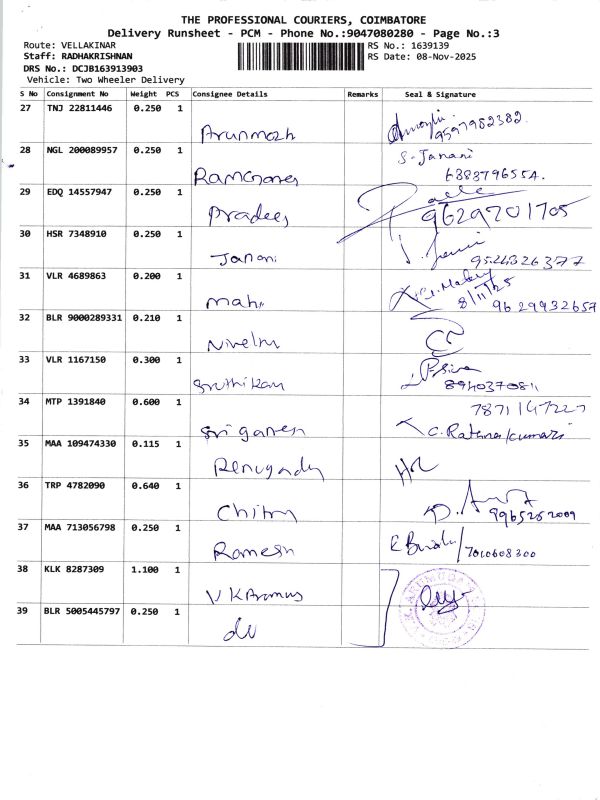 THE PROFESSIONAL COURIERS, COIMBATORE
Delivery Runsheet - PCM - Phone No.:9047080280 - Page No.:3
Route: VELLAKINAR RS No.: 1639139
Staff: RADHAKRISHNAN RS Date: 08-Nov-2025
DRS No.: DCJB163913903
Vehicle: Two Wheeler Delivery
S No Consignment No Weight PCS Consignee Details Remarks Seal & Signature
27 TNJ 22811446 0.250 1
Arunmozh 9597982389
28 NGL 200089957 0.250 1 S. Janani
6388796554.
29 EDQ 14557947 0.250 1
Pradeep 9629701705
30 HSR 7348910 0.250 1
Janani 9526326377
31 VLR 4689863 0.200 1
Mahi 8/11/25 9629932657
32 BLR 9000289331 0.210 1
33 VLR 1167150 0.300 1
Sruthikan
34 MTP 1391840 0.600 1 7871147227
Sri ganesh C. Ratnakumari
35 MAA 109474330 0.115 1
36 TRP 4782090 0.640 1
Chitra 9965252009
37 MAA 713056798 0.250 1
Ramesh 7010608300
38 KLK 8287309 1.100 1
39 BLR 5005445797 0.250 1
do